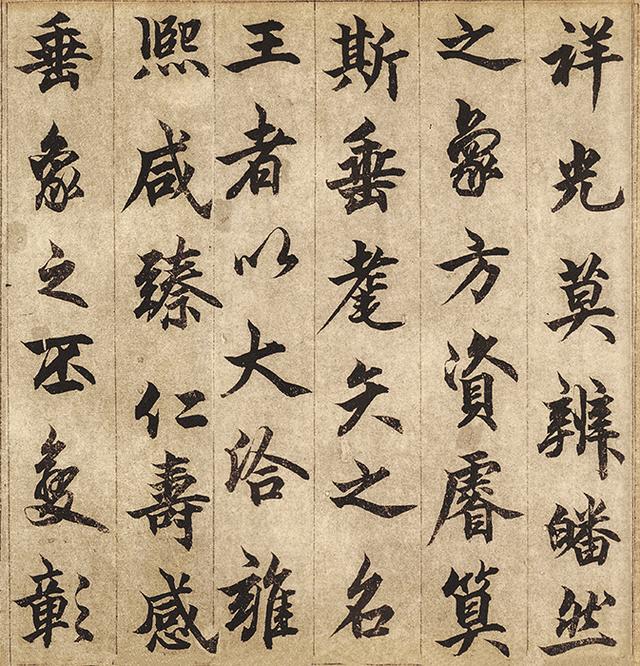 祥光莫辨皤然
之象方資睿算
斯垂耄矣之名
王者以大洽雍
熙咸臻仁壽感
垂象之丕變彰